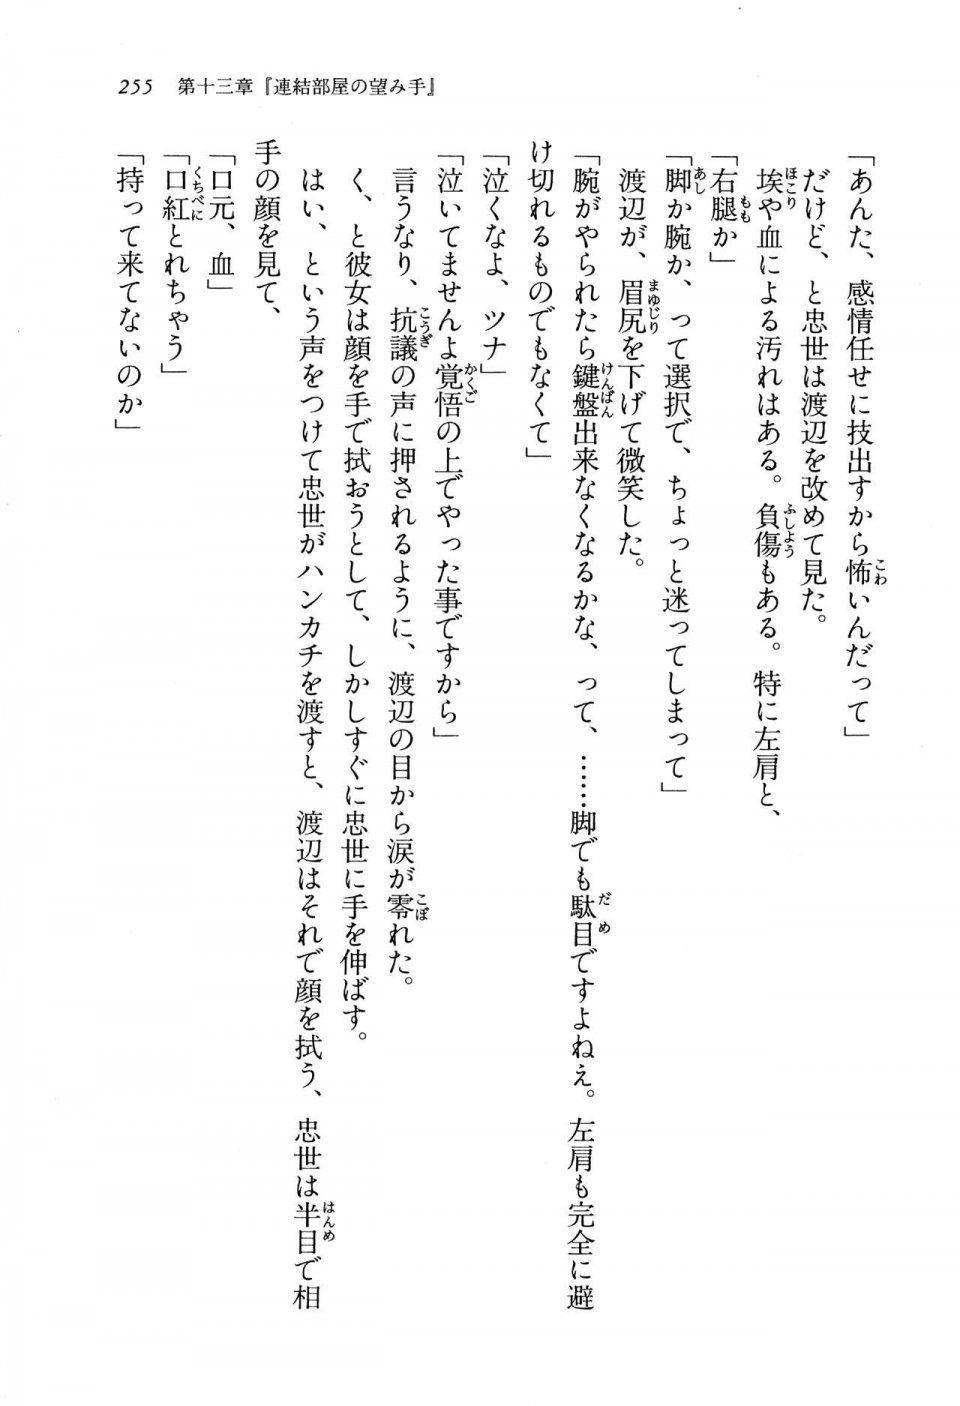 255　第十三章『連結部屋の望み手』
「あんた、感情任せに技出すから怖いんだって」
だけど、と忠世は渡辺を改めて見た。
埃や血による汚れはある。負傷もある。特に左肩と、
「右腿か」
「脚か腕か、って選択で、ちょっと迷ってしまって」
渡辺が、眉尻を下げて微笑した。
「腕がやられたら鍵盤出来なくなるかな、って、……脚でも駄目ですよねえ。左肩も完全に避
け切れるものでもなくて」
「泣くなよ、ツナ」
「泣いてませんよ覚悟の上でやった事ですから」
言うなり、抗議の声に押されるように、渡辺の目から涙が零れた。
く、と彼女は顔を手で拭おうとして、しかしすぐに忠世に手を伸ばす。
はい、という声をつけて忠世がハンカチを渡すと、渡辺はそれで顔を拭う、忠世は半目で相
手の顔を見て、
「口元、血」
「口紅とれちゃう」
「持って来てないのか」